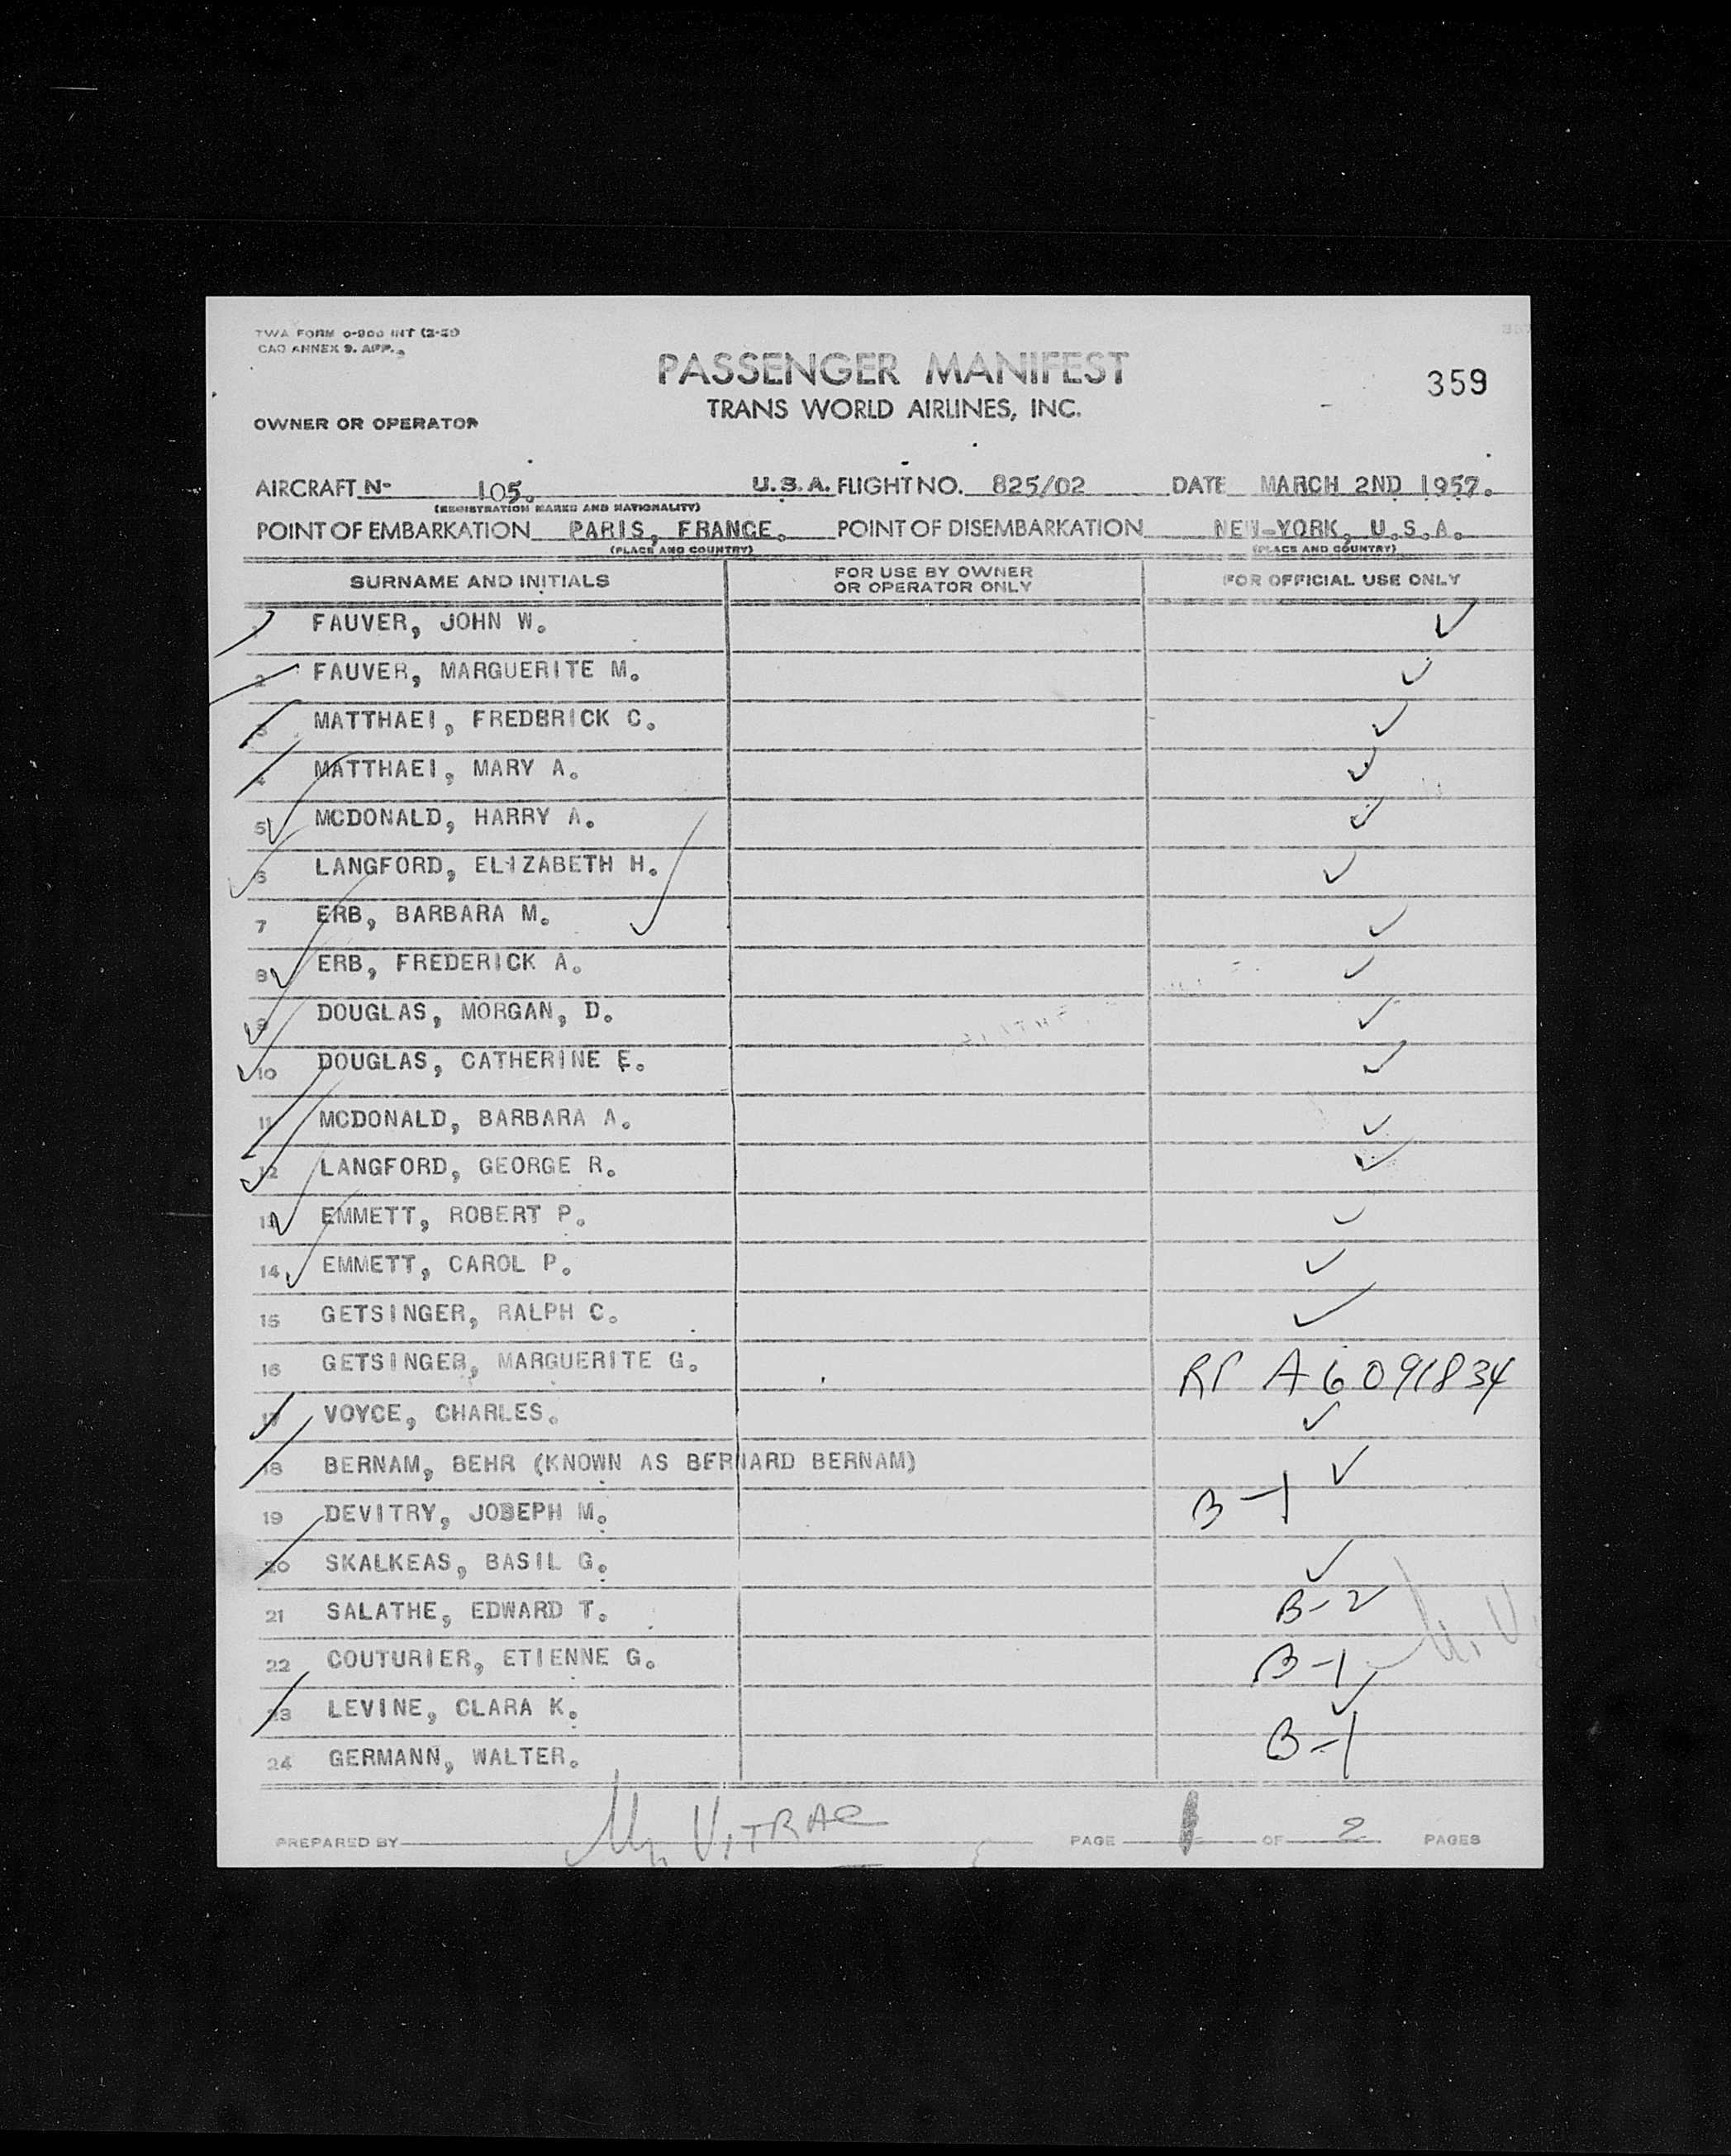 TWA FORM 0-900 INT (2-51)
CAO ANNEX 9. APP.
PASSENGER MANIFEST
359
TRANS WORLD AIRLINES, INC.
OWNER OR OPERATOR
AIRCRAFT N- 105. U.S.A. FLIGHT NO. 825/02 DATE MARCH 2ND 1957.
(REGISTRATION MARKS AND NATIONALITY)
POINT OF EMBARKATION PARIS, FRANCE. POINT OF DISEMBARKATION NEW-YORK, U.S.A.
(PLACE AND COUNTRY) (PLACE AND COUNTRY)
SURNAME AND INITIALS FOR USE BY OWNER OR OPERATOR ONLY FOR OFFICIAL USE ONLY
1 FAUVER, JOHN W. ✓
2 FAUVER, MARGUERITE M. ✓
3 MATTHAEI, FREDERICK C. ✓
4 MATTHAEI, MARY A. ✓
5 MCDONALD, HARRY A. ✓
6 LANGFORD, ELIZABETH H. ✓
7 ERB, BARBARA M. ✓
8 ERB, FREDERICK A. ✓
9 DOUGLAS, MORGAN, D. ✓
10 DOUGLAS, CATHERINE E. ✓
11 MCDONALD, BARBARA A. ✓
12 LANGFORD, GEORGE R. ✓
13 EMMETT, ROBERT P. ✓
14 EMMETT, CAROL P. ✓
15 GETSINGER, RALPH C. ✓
16 GETSINGER, MARGUERITE G. RP A6 091834
17 VOYCE, CHARLES. ✓
18 BERNAM, BEHR (KNOWN AS BERNARD BERNAM) ✓
19 DEVITRY, JOSEPH M. B-1
20 SKALKEAS, BASIL G. ✓
21 SALATHE, EDWARD T. B-2
22 COUTURIER, ETIENNE G. B-1
23 LEVINE, CLARA K. ✓
24 GERMANN, WALTER. B-1
PREPARED BY M. VITRAC PAGE 1 OF 2 PAGES